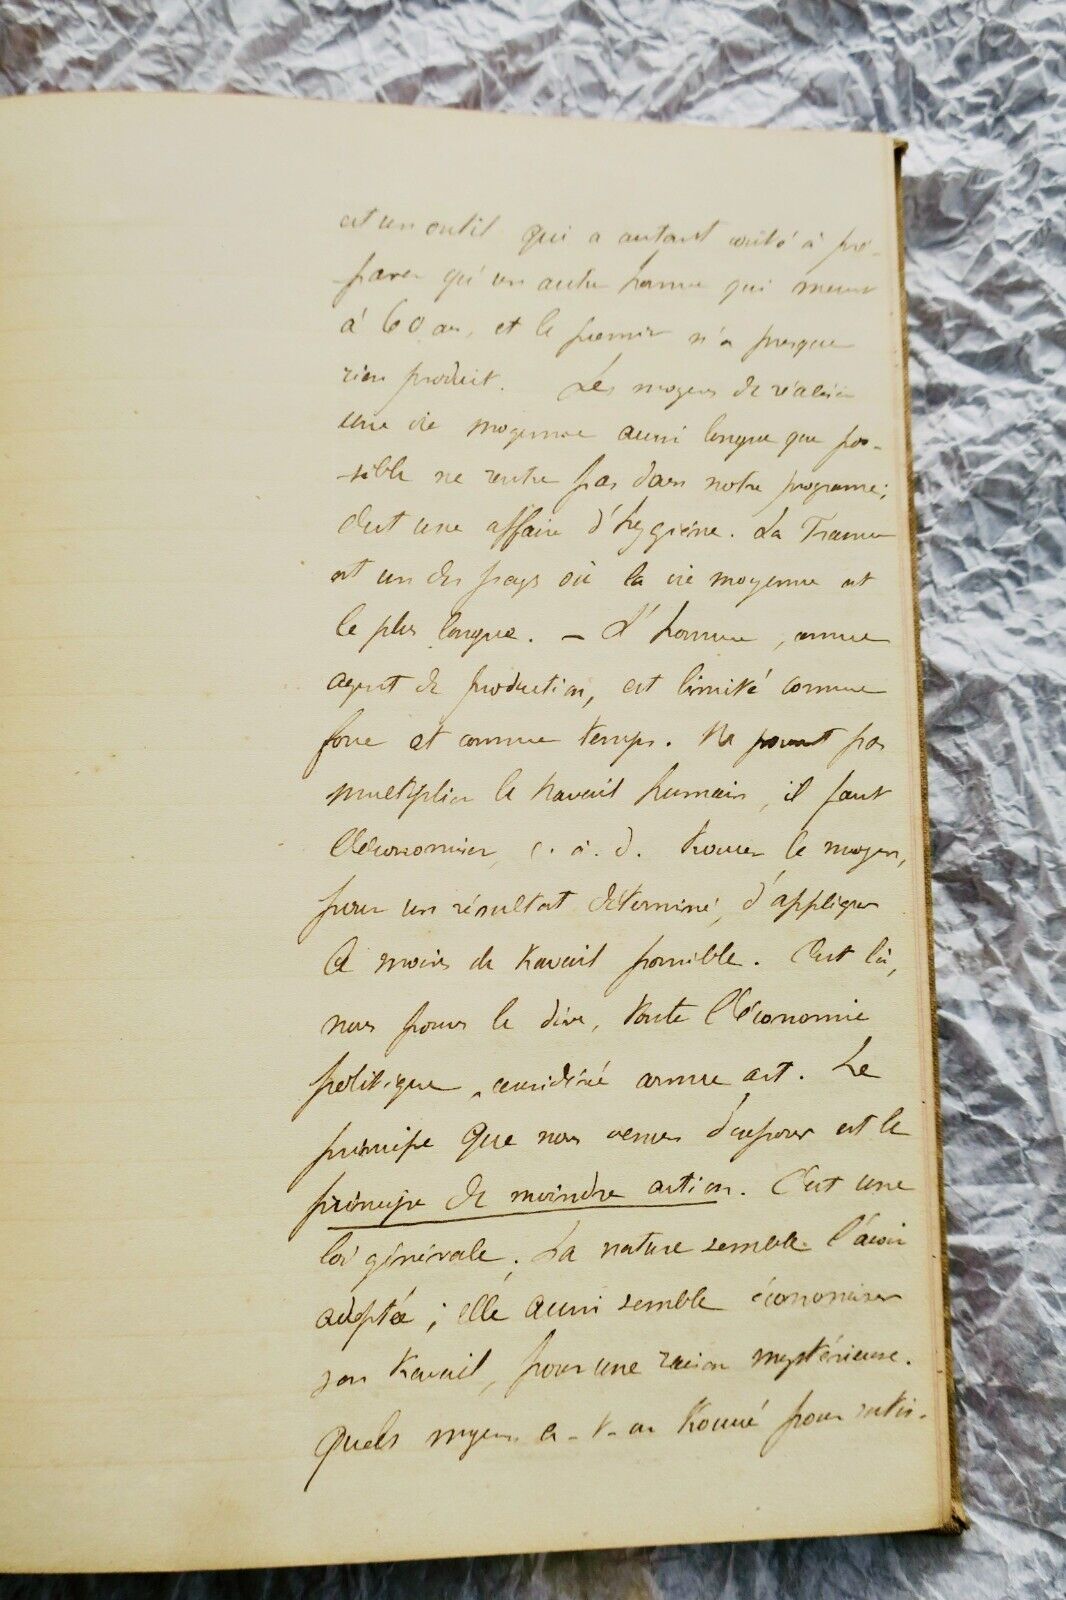 est un outil qui a autant coûté à pré-
parer qu'un autre homme qui meurt
à 60 ans, et le premier n'a presque
rien produit. Les moyens de réaliser
une vie moyenne aussi longue que pos-
sible ne rentre pas dans notre programe;
c'est une affaire d'hygiène. La France
est un des pays où la vie moyenne est
le plus longue. — L'homme, comme
agent de production, est limité comme
force et comme temps. Ne pouvant pas
multiplier le travail humain, il faut
l'économiser, c. à. d. trouver le moyen,
pour un résultat déterminé, d'appliquer
le moins de travail possible. C'est là,
nous pouvons le dire, toute l'économie
politique, considérée comme art. Le
principe que nous venons d'exposer est le
principe de moindre action. C'est une
loi générale; La nature semble l'avoir
adoptée; elle aussi semble économiser
son travail, pour une raison mystérieuse.
Quels moyens a-t-on trouvé pour